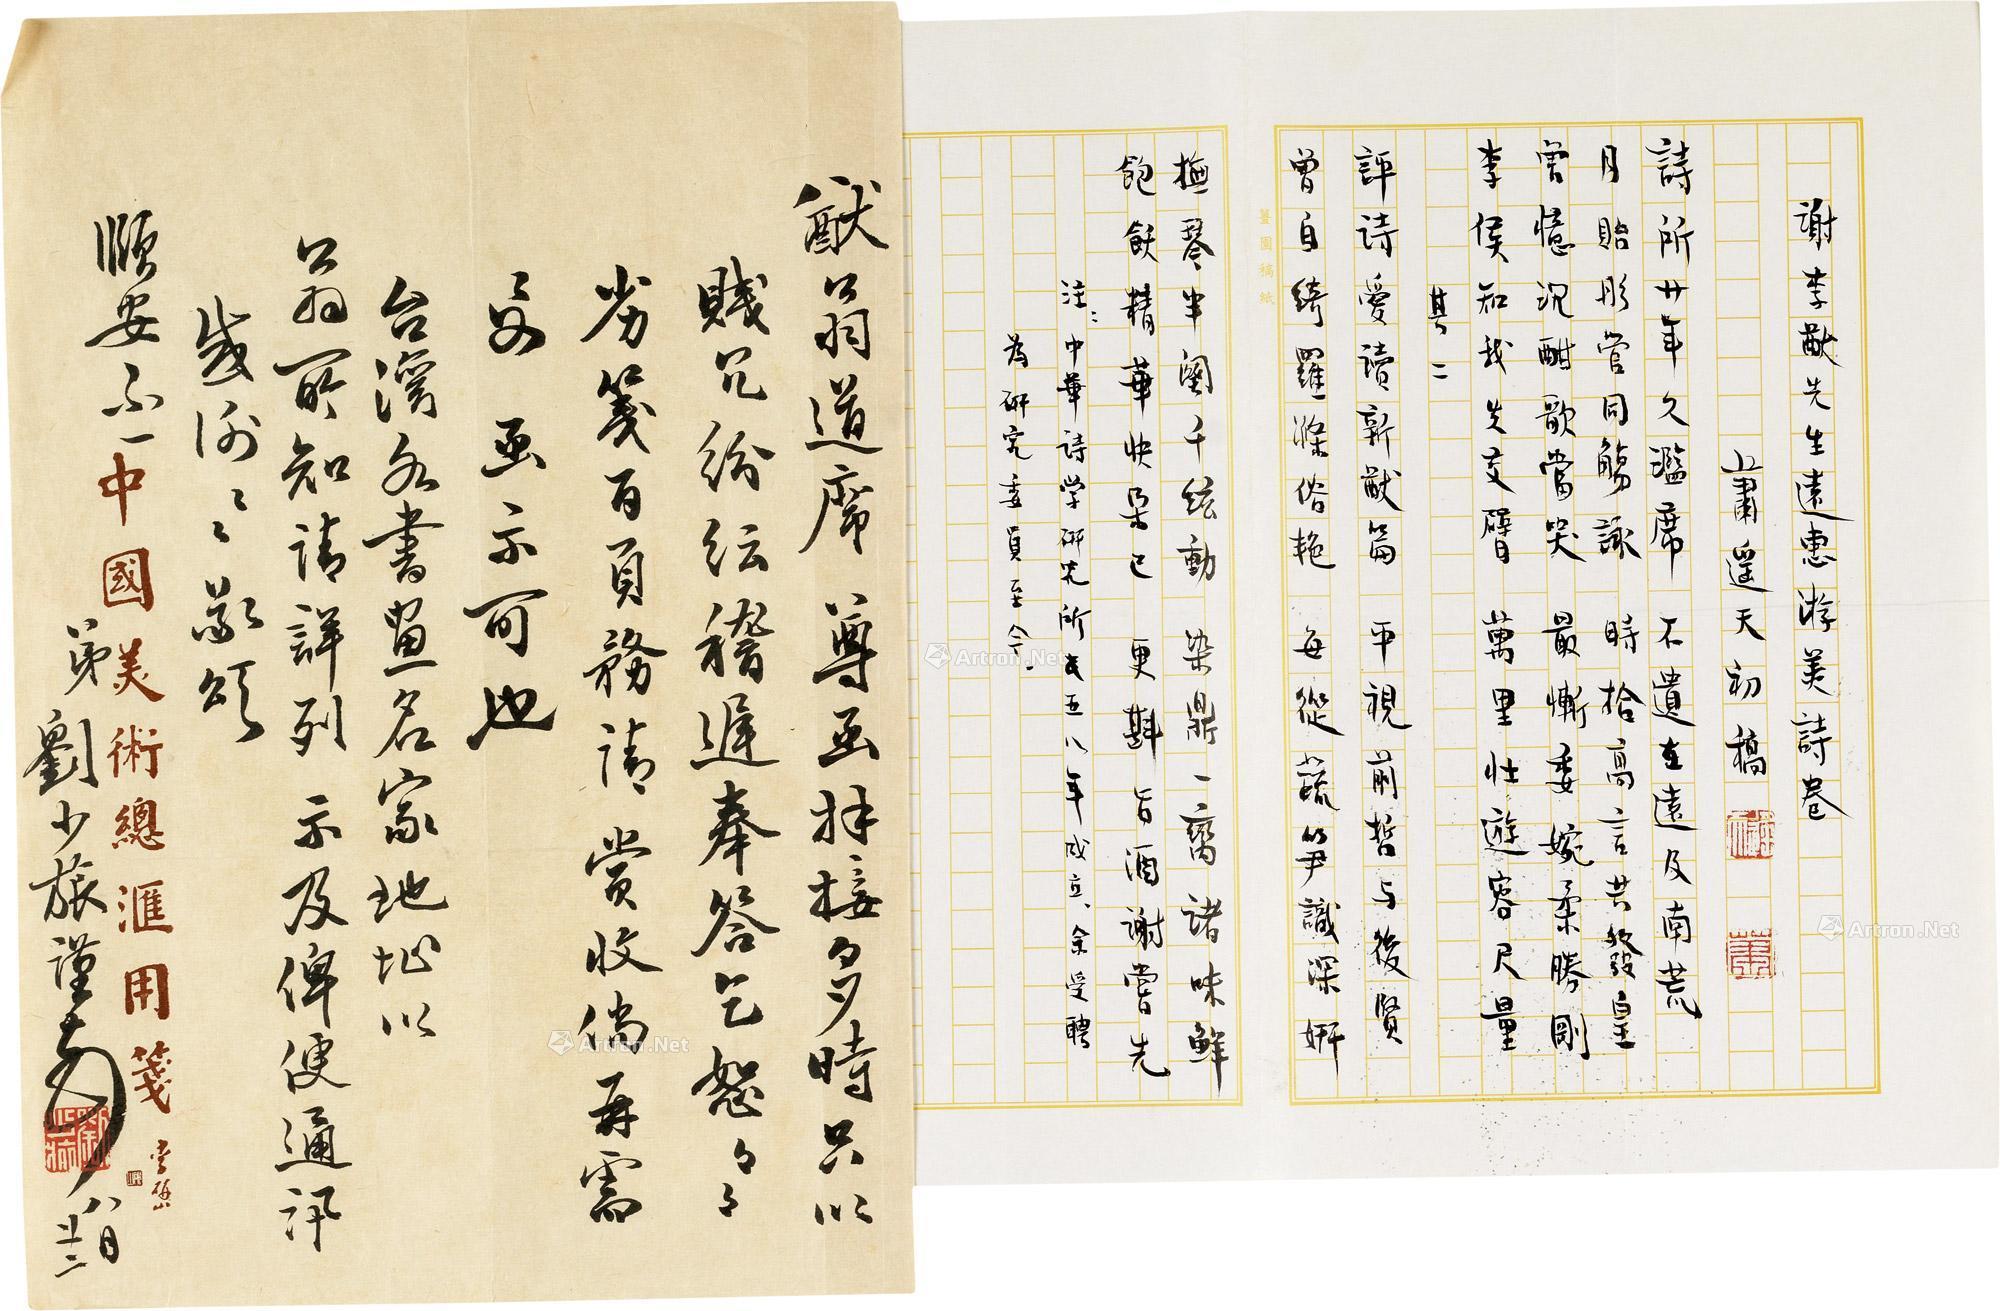 謝李猷先生遠惠游美詩卷
蕭遥天初稿
詩所廿年久濫席 不遺在遠及南荒
月貽彤管同觴詠 時拾高言共發皇
害憶沉酣歌當哭 最慚委婉柔勝剛
李侯知我先交臂 萬里壮遊容尺量
其二
評詩愛讀新猷篇 平視前哲与後賢
曾自綺羅滌俗艳 每從蔬笋識深妍
撫琴半闋千絃動 染鼎一臠諸味鮮
飽飫精華快朵已 更斟旨酒謝嘗先
注：中華诗学研究所成五八年成立、余受聘
为研究委員至今.
薑園稿紙
猷公翁道席 尊函拜接多時只以
賤冗紛纭稽遲奉答乞恕々々
劣箋百頁務请賞收倘再需
要 函示可也
台灣各書畫名家地址以
公翁所知請詳列 示及俾便通訊
感謝々々 敬頌
順安不一
弟劉少旅謹啟 八月廿二
中國美術總滙用箋
Artron.Net
Artron.Net
Artron.Net